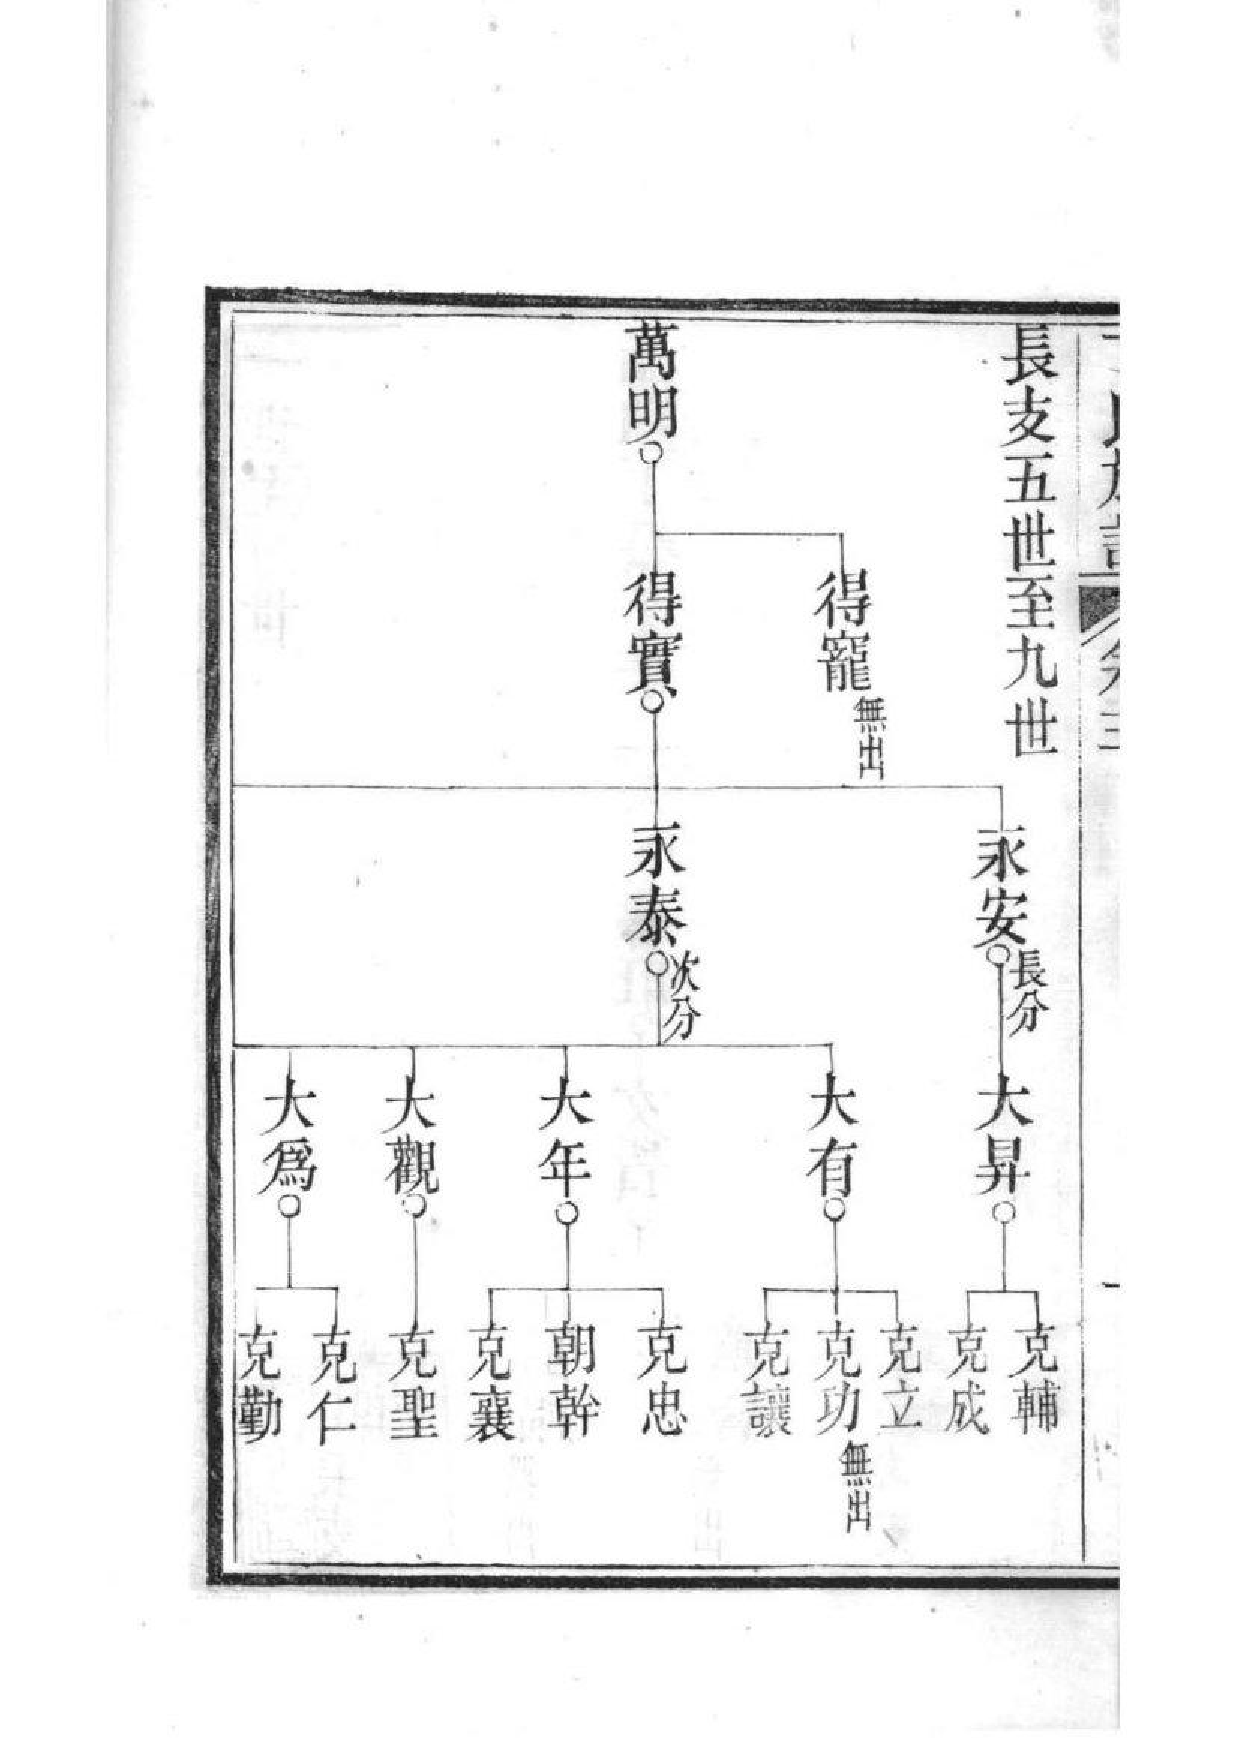 長支五世至九世
萬明
得寵
無出
得實
永安
長分
永泰
次分
大昇
大有
大年
大觀
大爲
克輔
克成
克立
克功
無出
克讓
克忠
朝幹
克襄
克聖
克仁
克勤